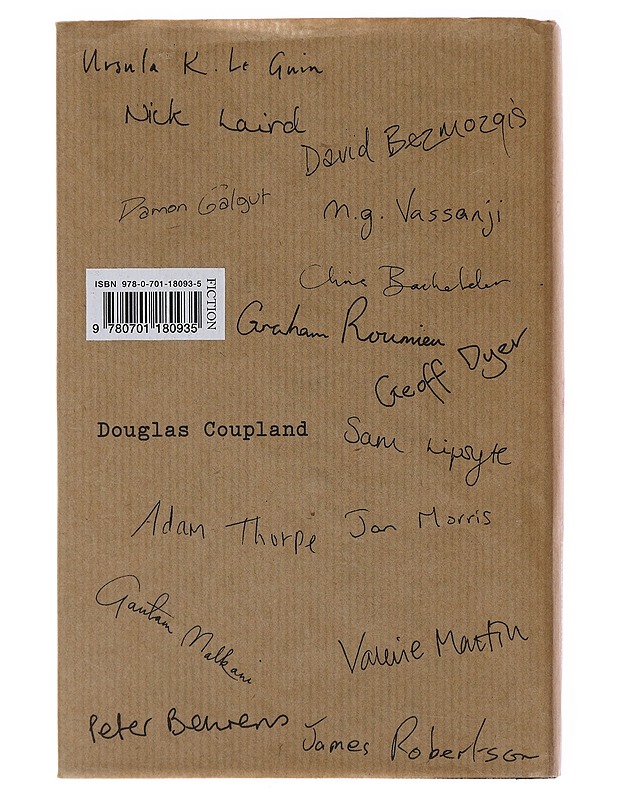 Ursula K. Le Guin
Nick Laird
David Bezmozgis
Damon Galgut
M.g. Vassanji
Chris Bachelder
ISBN 978-0-701-18093-5
FICTION
9 780701 180935
Graham Roumieu
Geoff Dyer
Douglas Coupland
Sam Lipsyte
Adam Thorpe
Jan Morris
Gautam Malkani
Valerie Martin
Peter Behrens
James Robertson